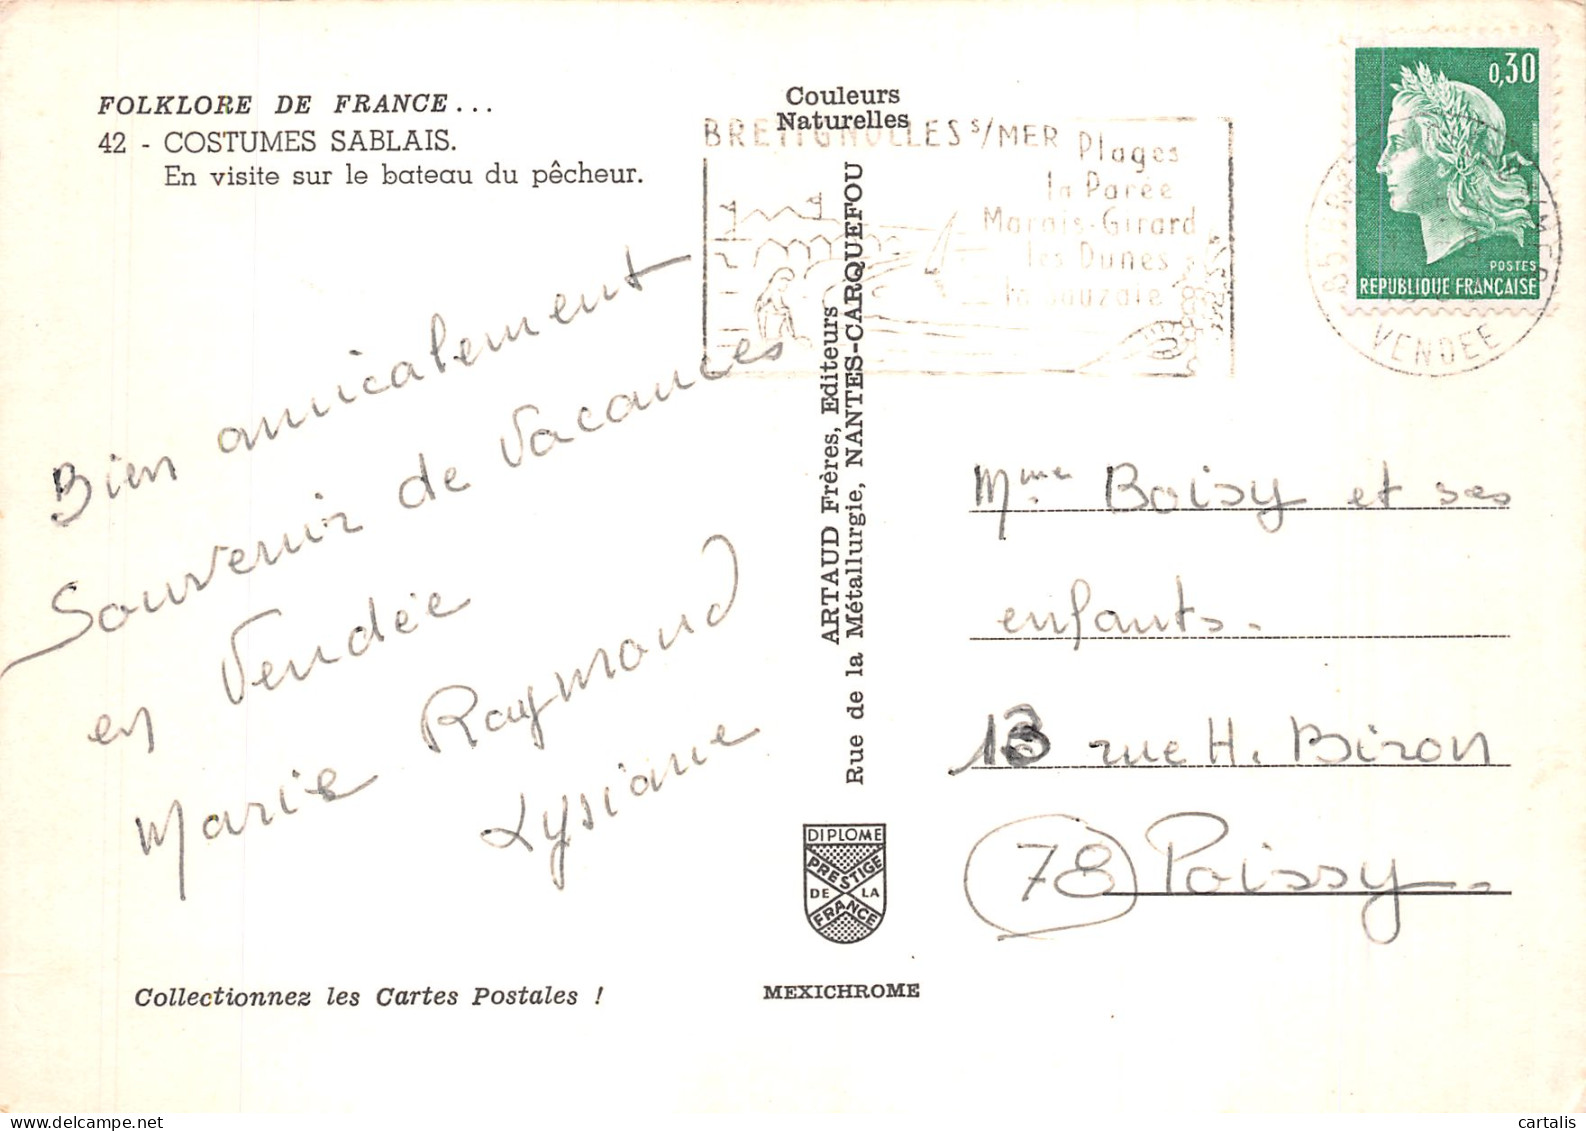 FOLKLORE DE FRANCE...
42 - COSTUMES SABLAIS.
En visite sur le bateau du pêcheur.
Bien amicalement
Souvenir de Vacances
en Vendée
Marie Raymond
Lysiane
Collectionnez les Cartes Postales !
Couleurs
Naturelles
ARTAUD Frères, Editeurs
Rue de la Métallurgie, NANTES-CARQUEFOU
DIPLOME
PRESTIGE
DE LA
FRANCE
MEXICHROME
BRETIGNOLLES s/MER
Plages
la Parée
Marais-Girard
les Dunes
la Sauzaie
0,30
POSTES
REPUBLIQUE FRANÇAISE
VENDEE
Mme Boisy et ses
enfants.
13 rue H. Biron
78 Poissy.
cartalis